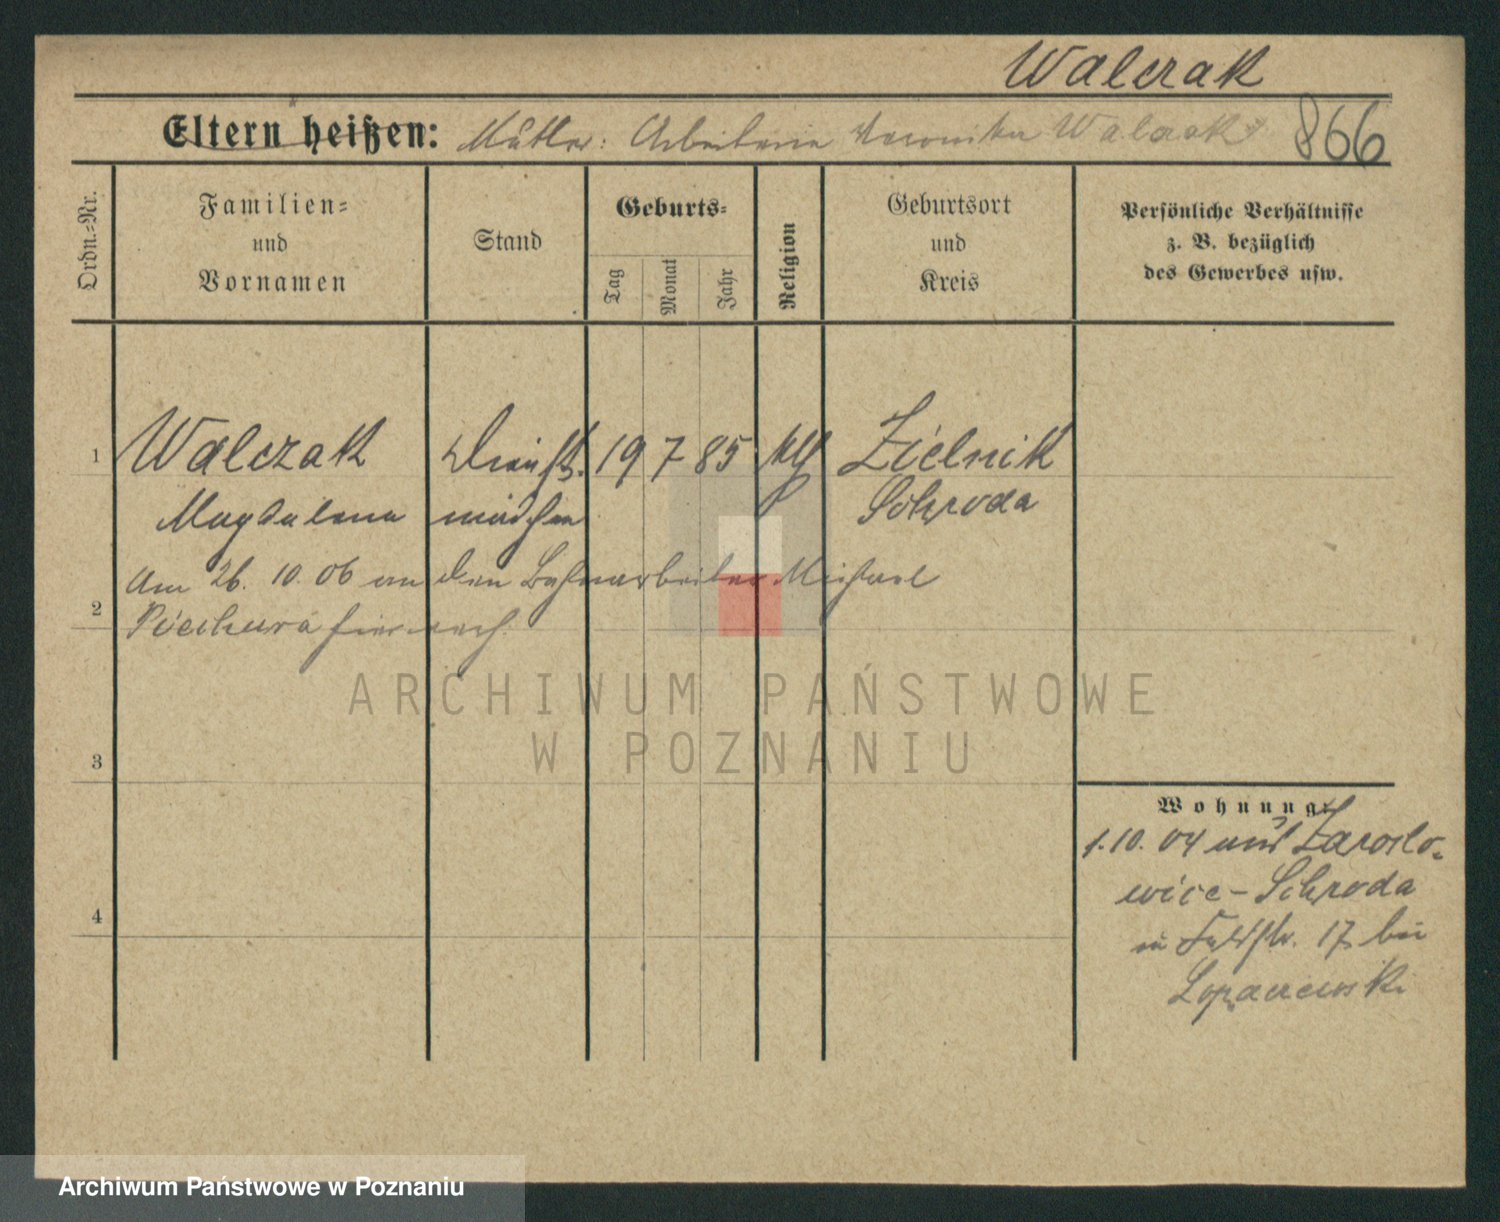 Walczak
Eltern heißen: Mutter: Arbeiterin Veronika Walczak 866
Ordn.-Nr.
Familien-
und
Vornamen
Stand
Geburts-
Tag
Monat
Jahr
Religion
Geburtsort
und
Kreis
Persönliche Verhältnisse
z. B. bezüglich
des Gewerbes usw.
1 Walczak Dienst- 19 7 85 kth Zielnik
Magdalena mädchen Schroda
Am 26. 10. 06 an den Bahnarbeiter Michael
2 Piechura
3
4
Wohnung:
1.10. 04 aus Zaroslo-
wice - Schroda
in Feldstr. 17 bei
Lopaczewski
ARCHIWUM PAŃSTWOWE
W POZNANIU
Archiwum Państwowe w Poznaniu